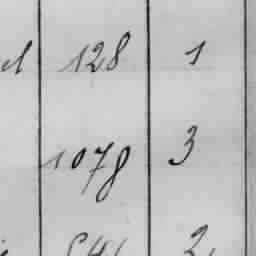 128 1
1078 3
2